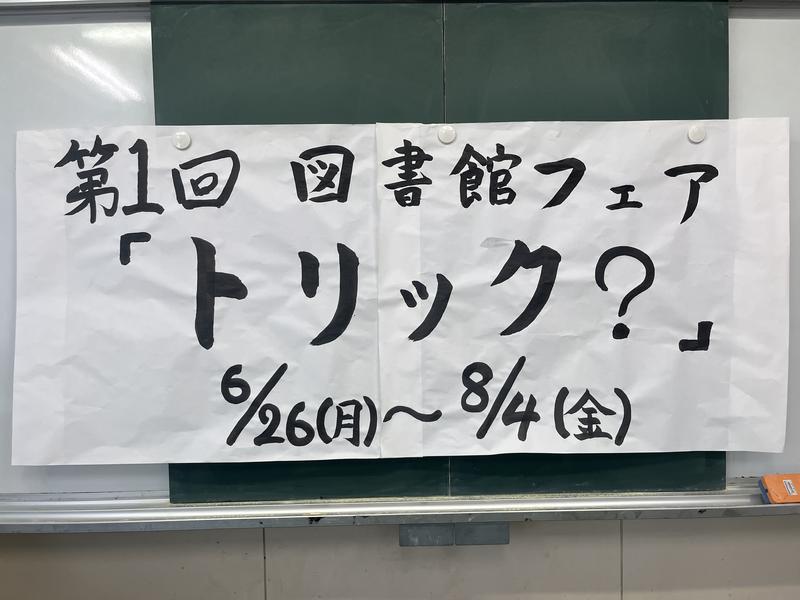 第1回 図書館フェア
「トリック?」
6/26(月)～8/4(金)